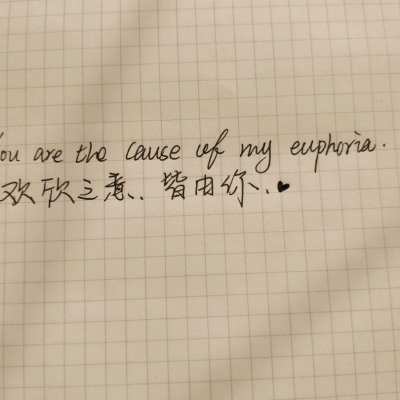 You are the cause of my euphoria.
欢欣之意.皆由你.♥